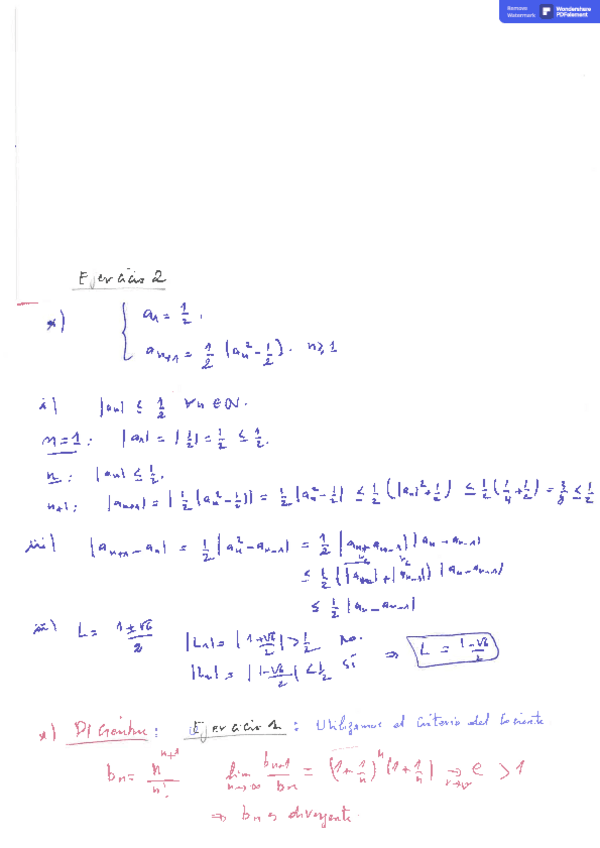 Remove Watermark
Wondershare PDFelement
Ejercicio 2
*) { a₁ = 1/2.
a_{n+1} = 1/2 (a_n² - 1/2). n ≥ 1
i) |a_n| ≤ 1/2 ∀n ∈ ℕ.
n=1: |a₁| = |1/2| = 1/2 ≤ 1/2.
n: |a_n| ≤ 1/2.
n+1: |a_{n+1}| = |1/2 (a_n² - 1/2)| = 1/2 |a_n² - 1/2| ≤ 1/2 (|a_n|² + 1/2) ≤ 1/2 (1/4 + 1/2) = 3/8 ≤ 1/2
|a_{n+1} - a_n| = 1/2 |a_n² - a_{n-1}| = 1/2 |a_n + a_{n-1}| |a_n - a_{n-1}|
≤ 1/2 (|a_n| + |a_{n-1}|) |a_n - a_{n-1}|
≤ 1/2 |a_n - a_{n-1}|
iii) L = (1 ± √6)/2 |L₁| = |(1+√6)/2| > 1/2 No.
|L₂| = |(1-√6)/2| < 1/2 Sí ⇒ L = (1-√6)/2
*) : Ejercicio 1: Utilizamos el Criterio del Cociente
b_n = n^{n+1}/n! lim_{n→∞} b_{n+1}/b_n = (1 + 1/n)^n (1 + 1/n) → e > 1
⇒ b_n es divergente.